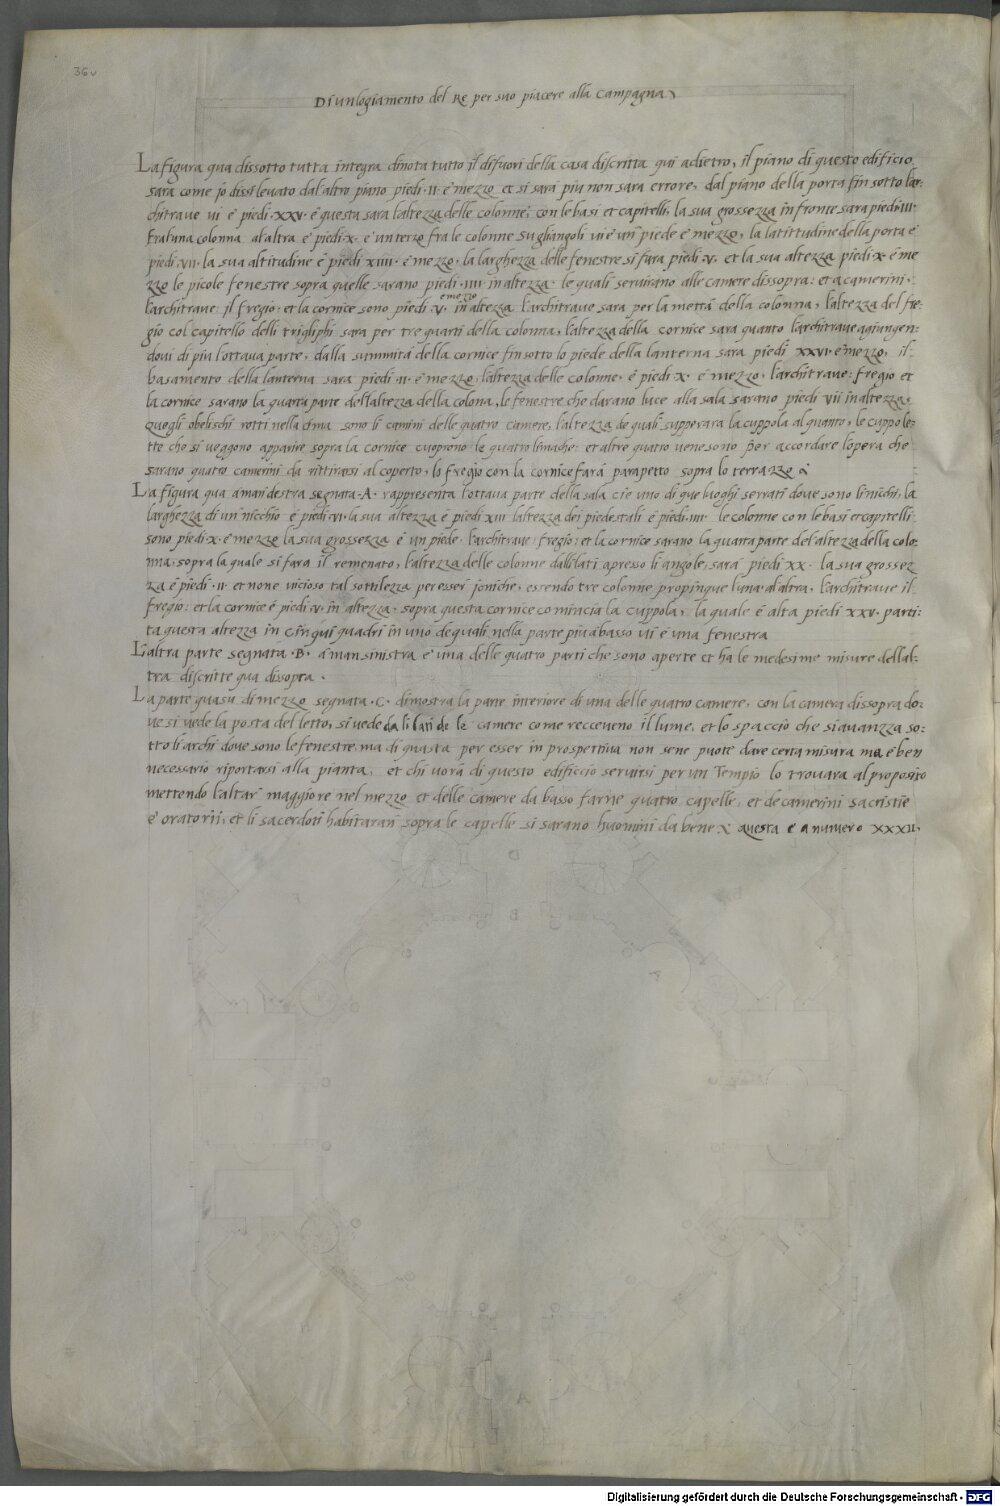 36v
Di un logiamento del Re per suo piacere alla Campagna
La figura qua dissotto tutta integra dinota tutto il difuori della casa discritta qui adietro, il piano di questo edificio
sara come jo dissi levato dal altro piano piedi ·II· e mezzo et si sara piu non sara errore, dal piano della porta fin sotto lar:
chitrave vi e piedi ·XXV· e questa sara l'altezza delle colonne, con le basi et capitelli, la sua grossezza in fronte sara piedi ·III·
fra luna colonna al altra e piedi ·X· e un terzo fra le colonne su gliangoli vi e un piede e mezzo, la latittudine della porta e
piedi ·VII· la sua altitudine e piedi XIIII· e mezzo· la larghezza delle fenestre si fara piedi ·V· et la sua altezza piedi ·X· e me
zzo le picole fenestre sopra quelle sarano piedi ·IIII· in altezza· le quali servirano alle camere dissopra: et a camerini,
l'architrave: il fregio: et la cornice sono piedi ·V· e mezzo in altezza l'architrave sara per la mettà della colonna, l'altezza del fre:
gio col capitello delli trigliphi sara per tre quarti della colonna, l'altezza della cornice sara quanto l'architrave agiungen:
dovi di piu l'ottava parte, dalla summità della cornice fin sotto lo piede della lanterna sara piedi XXVI· e mezzo, il
basamento della lanterna sara piedi ·II· e mezzo, l'altezza delle colonne· e piedi ·X· e mezzo, l'architrave: fregio et
la cornice sarano la quarta parte dell'altezza della colona, le fenestre che darano luce alla sala sarano piedi VII in altezza,
quegli obelischi rotti nella cima sono li camini delle quatro camere, l'altezza de quali supperara la cuppola al quanto, le cuppole:
tte che si veggono apparire sopra la cornice cuoprono le quatro limache: et altre quatro vene sono per accordare l'opera che
sarano quatro camerini da rittirarsi al coperto, lo fregio con la cornice fara parapetto sopra lo terrazzo
La figura qua a man destra segnata ·A· rappresenta l'ottava parte della sala cie uno di que luoghi serrati dove sono li nichi, la
larghezza di un nicchio e piedi ·VI· la sua altezza e piedi XIII l'altezza dei piedestali e piedi ·IIII· le colonne con le basi et capitelli
sono piedi ·X· e mezzo la sua grossezza e un piede· l'architrave: fregio: et la cornice sarano la quarta parte del altezza della colo:
nna, sopra la quale si fara il remenato, l'altezza delle colonne dalli lati apresso li angole, sara piedi XX· la sua grossez
za e piedi ·II· et none vicioso tal sottilezza per esser joniche, essendo tre colonne propinque luna al altra, l'architrave il
fregio: et la cornice e piedi ·V· in altezza, sopra questa cornice comincia la cuppola, la quale e alta piedi XXV· parti:
ta questa altezza in cinqui quadri in uno de quali nella parte piu abasso vi e una fenestra
L'altra parte segnata ·B· a man sinistra e una delle quatro parti che sono aperte et ha le medesime misure dellal:
tra discritte qua dissopra ·
La parte quasu di mezzo segnata ·C· dimostra la parte interiore di una delle quatro camere, con la camera dissopra do:
ve si vede la posta del letto, si vede da li lati de le camere come recceveno il lume, et lo spaccio che si avanzza so:
tto li archi dove sono le fenestre, ma di quasta per esser in prospettiva non sene puote dare certa misura ma e ben
necessario riportarsi alla pianta, et chi vora di questo edificcio servirsi per un Tempio lo trovara al proposito
mettendo l'altar maggiore nel mezzo et delle camere da basso farne quatro capelle, et de camerini sacristie
e oratorii, et li sacerdoti habitaran sopra le capelle si sarano huomini da bene questa e a numero XXXII·
Digitalisierung gefördert durch die Deutsche Forschungsgemeinschaft - DFG